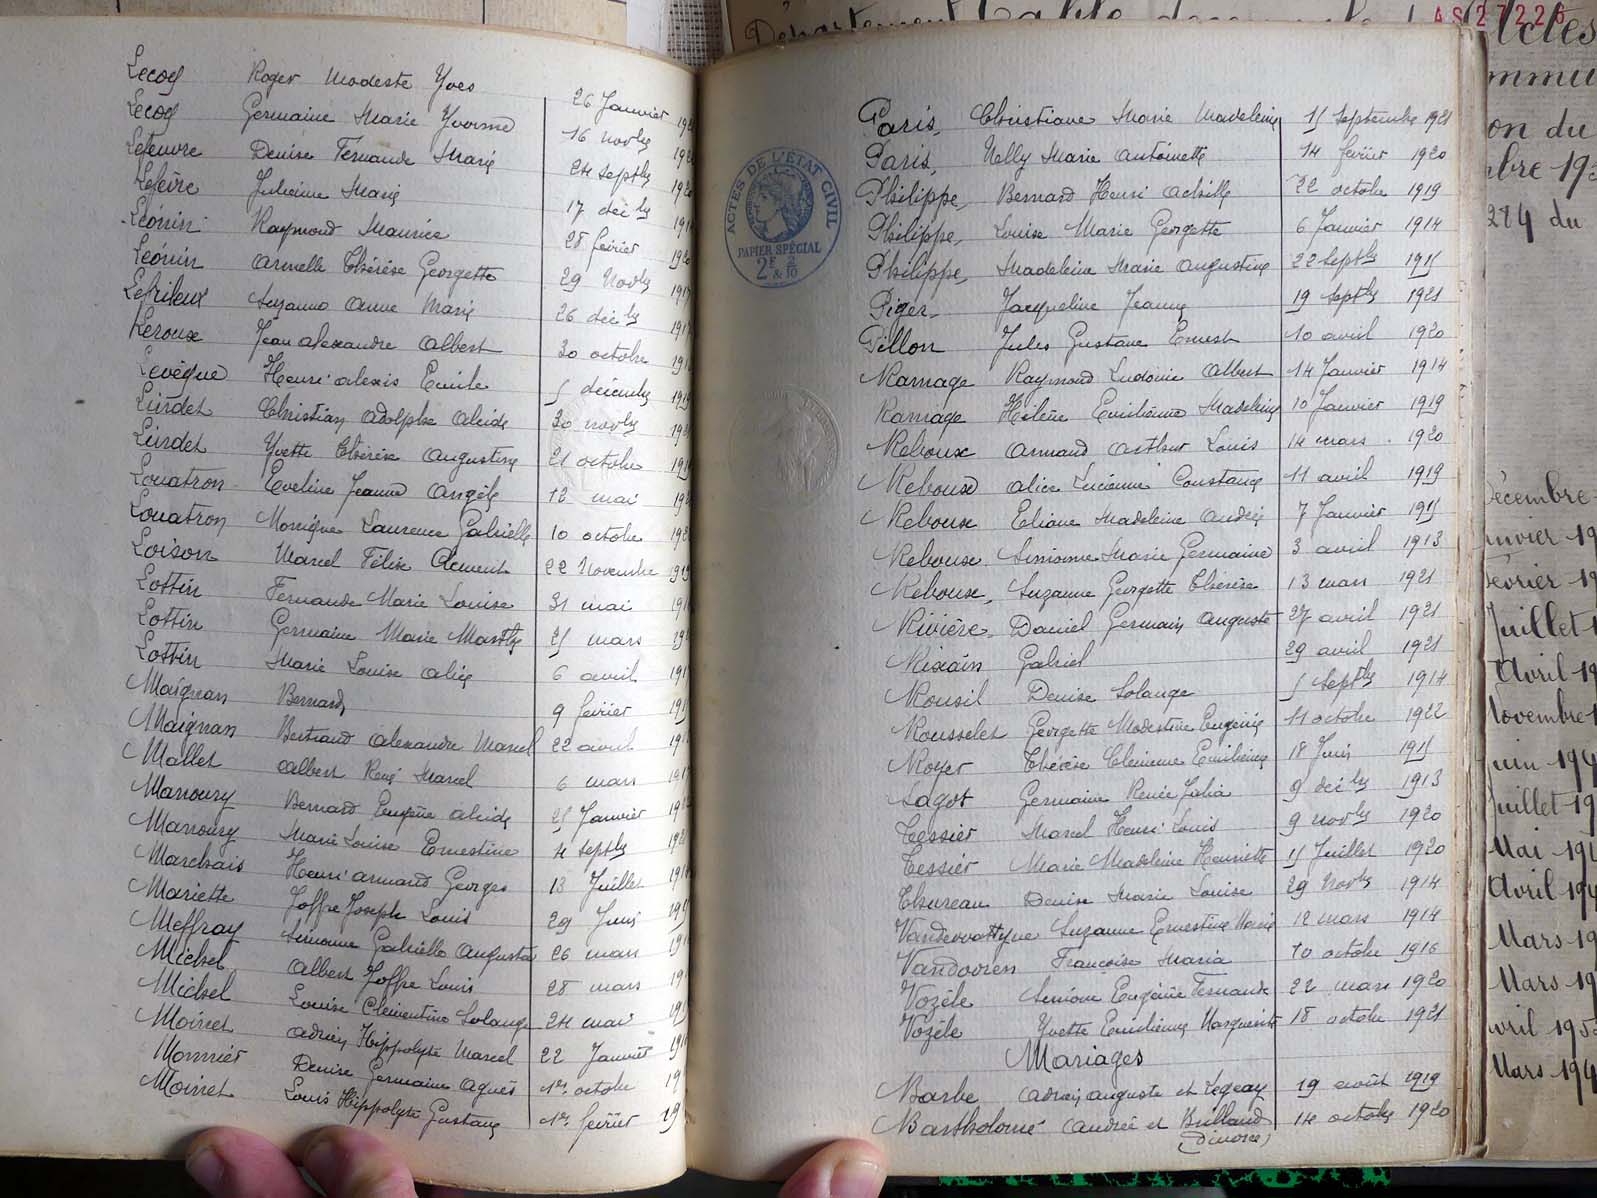 Lecoq Roger Modeste Yves 26 Janvier
Lecoq Germaine Marie Yvonne 16 novbre
Lefeuvre Denise Fernande Marie 24 septbre
Lefèvre Julienne Marie 17 décbre
Léonin Raymond Maurice 28 février
Léonin Armelle Thérèse Georgette 29 Novbre
Lefrileux Suzanne Anne Marie 26 décbre
Leroux Jean Alexandre Albert 30 octobre
Levèque Henri Alexis Emile 5 décembre 1919
Lindet Christian Adolphe Alcide 30 novbre
Lindet Yvette Thérèse Augustine 21 octobre
Louatron Eveline Jeanne Angèle 12 mai
Louatron Monique Laurence Gabrielle 10 octobre
Loison Marcel Félix Clément 22 Novembre 1919
Lottin Fernande Marie Louise 31 mai
Lottin Germaine Marie Marthe 25 mars
Lottin Marie Louise Alice 6 avril
Maignan Bernard 9 février
Maignan Bertrand Alexandre Marcel 22 avril
Mallet Albert René Marcel 6 mars
Manoury Bernard Eugène Alcide 25 Janvier
Manoury Marie Louise Ernestine 4 septbre
Marchais Henri Armand Georges 13 Juillet
Mariette Joffre Joseph Louis 29 Juin
Meffray Simonne Gabrielle Augusta 26 mars
Michel Albert Joffre Louis 28 mars
Michel Louise Clémentine Solange 24 mai
Moinet Adrien Hippolyte Marcel 22 Janvier
Monnier Denise Germaine Agnès 1er octobre
Moinet Louis Hippolyte Gustave 1er février
ACTES DE L'ÉTAT CIVIL
PAPIER SPÉCIAL
2F & 2/10
Paris, Christiane Marie Madeleine 15 Septembre 1921
Paris, Nelly Marie Antoinette 14 février 1920
Philippe, Bernard Henri Achille 22 octobre 1919
Philippe, Louise Marie Georgette 6 Janvier 1914
Philippe, Madeleine Marie Augustine 22 septbre 1915
Piger, Jacqueline Jeanne 19 septbre 1921
Pillon Jules Gustave Ernest 10 avril 1920
Ramage Raymond Ludovic Albert 14 Janvier 1914
Ramage Hélène Emilienne Madeleine 10 Janvier 1919
Reboux Armand Arthur Louis 14 mars 1920
Reboux Alice Lucienne Constance 11 avril 1919
Reboux Eliane Madeleine Andrée 7 Janvier 1915
Reboux Simonne Marie Germaine 3 avril 1913
Reboux, Suzanne Georgette Thérèse 13 mars 1921
Rivière, Daniel Germain Auguste 27 avril 1921
Rixain Gabriel 29 avril 1921
Rousil Denise Solange 5 Septbre 1914
Rousselet Georgette Modestine Eugénie 11 octobre 1922
Royer Thérèse Clémence Emilienne 18 Juin 1915
Sagot Germaine Renée Julia 9 décbre 1913
Tessier Marcel Henri Louis 9 novbre 1920
Tessier Marie Madeleine Henriette 15 Juillet 1920
Thureau Denise Marie Louise 29 Novbre 1914
Suzanne Ernestine Marie 12 mars 1914
Vandooren Françoise Maria 10 octobre 1916
Vozèle Simone Eugénie Fernande 22 mars 1920
Vozèle Yvette Emilienne Marguerite 18 octobre 1921
Mariages
Barbe Adrien Auguste et Legeay 19 août 1919
Bartholomé André et Brilland 14 octobre 1920
(Divorce)
Département
AS 27226
Actes
on du
284 du
Décembre
Février 19
Juillet 1
Avril 19
Novembre
Juin 194
Juillet 19
Mai
Avril 194
Mars 19
Mars 19
Avril 195
Mars 194